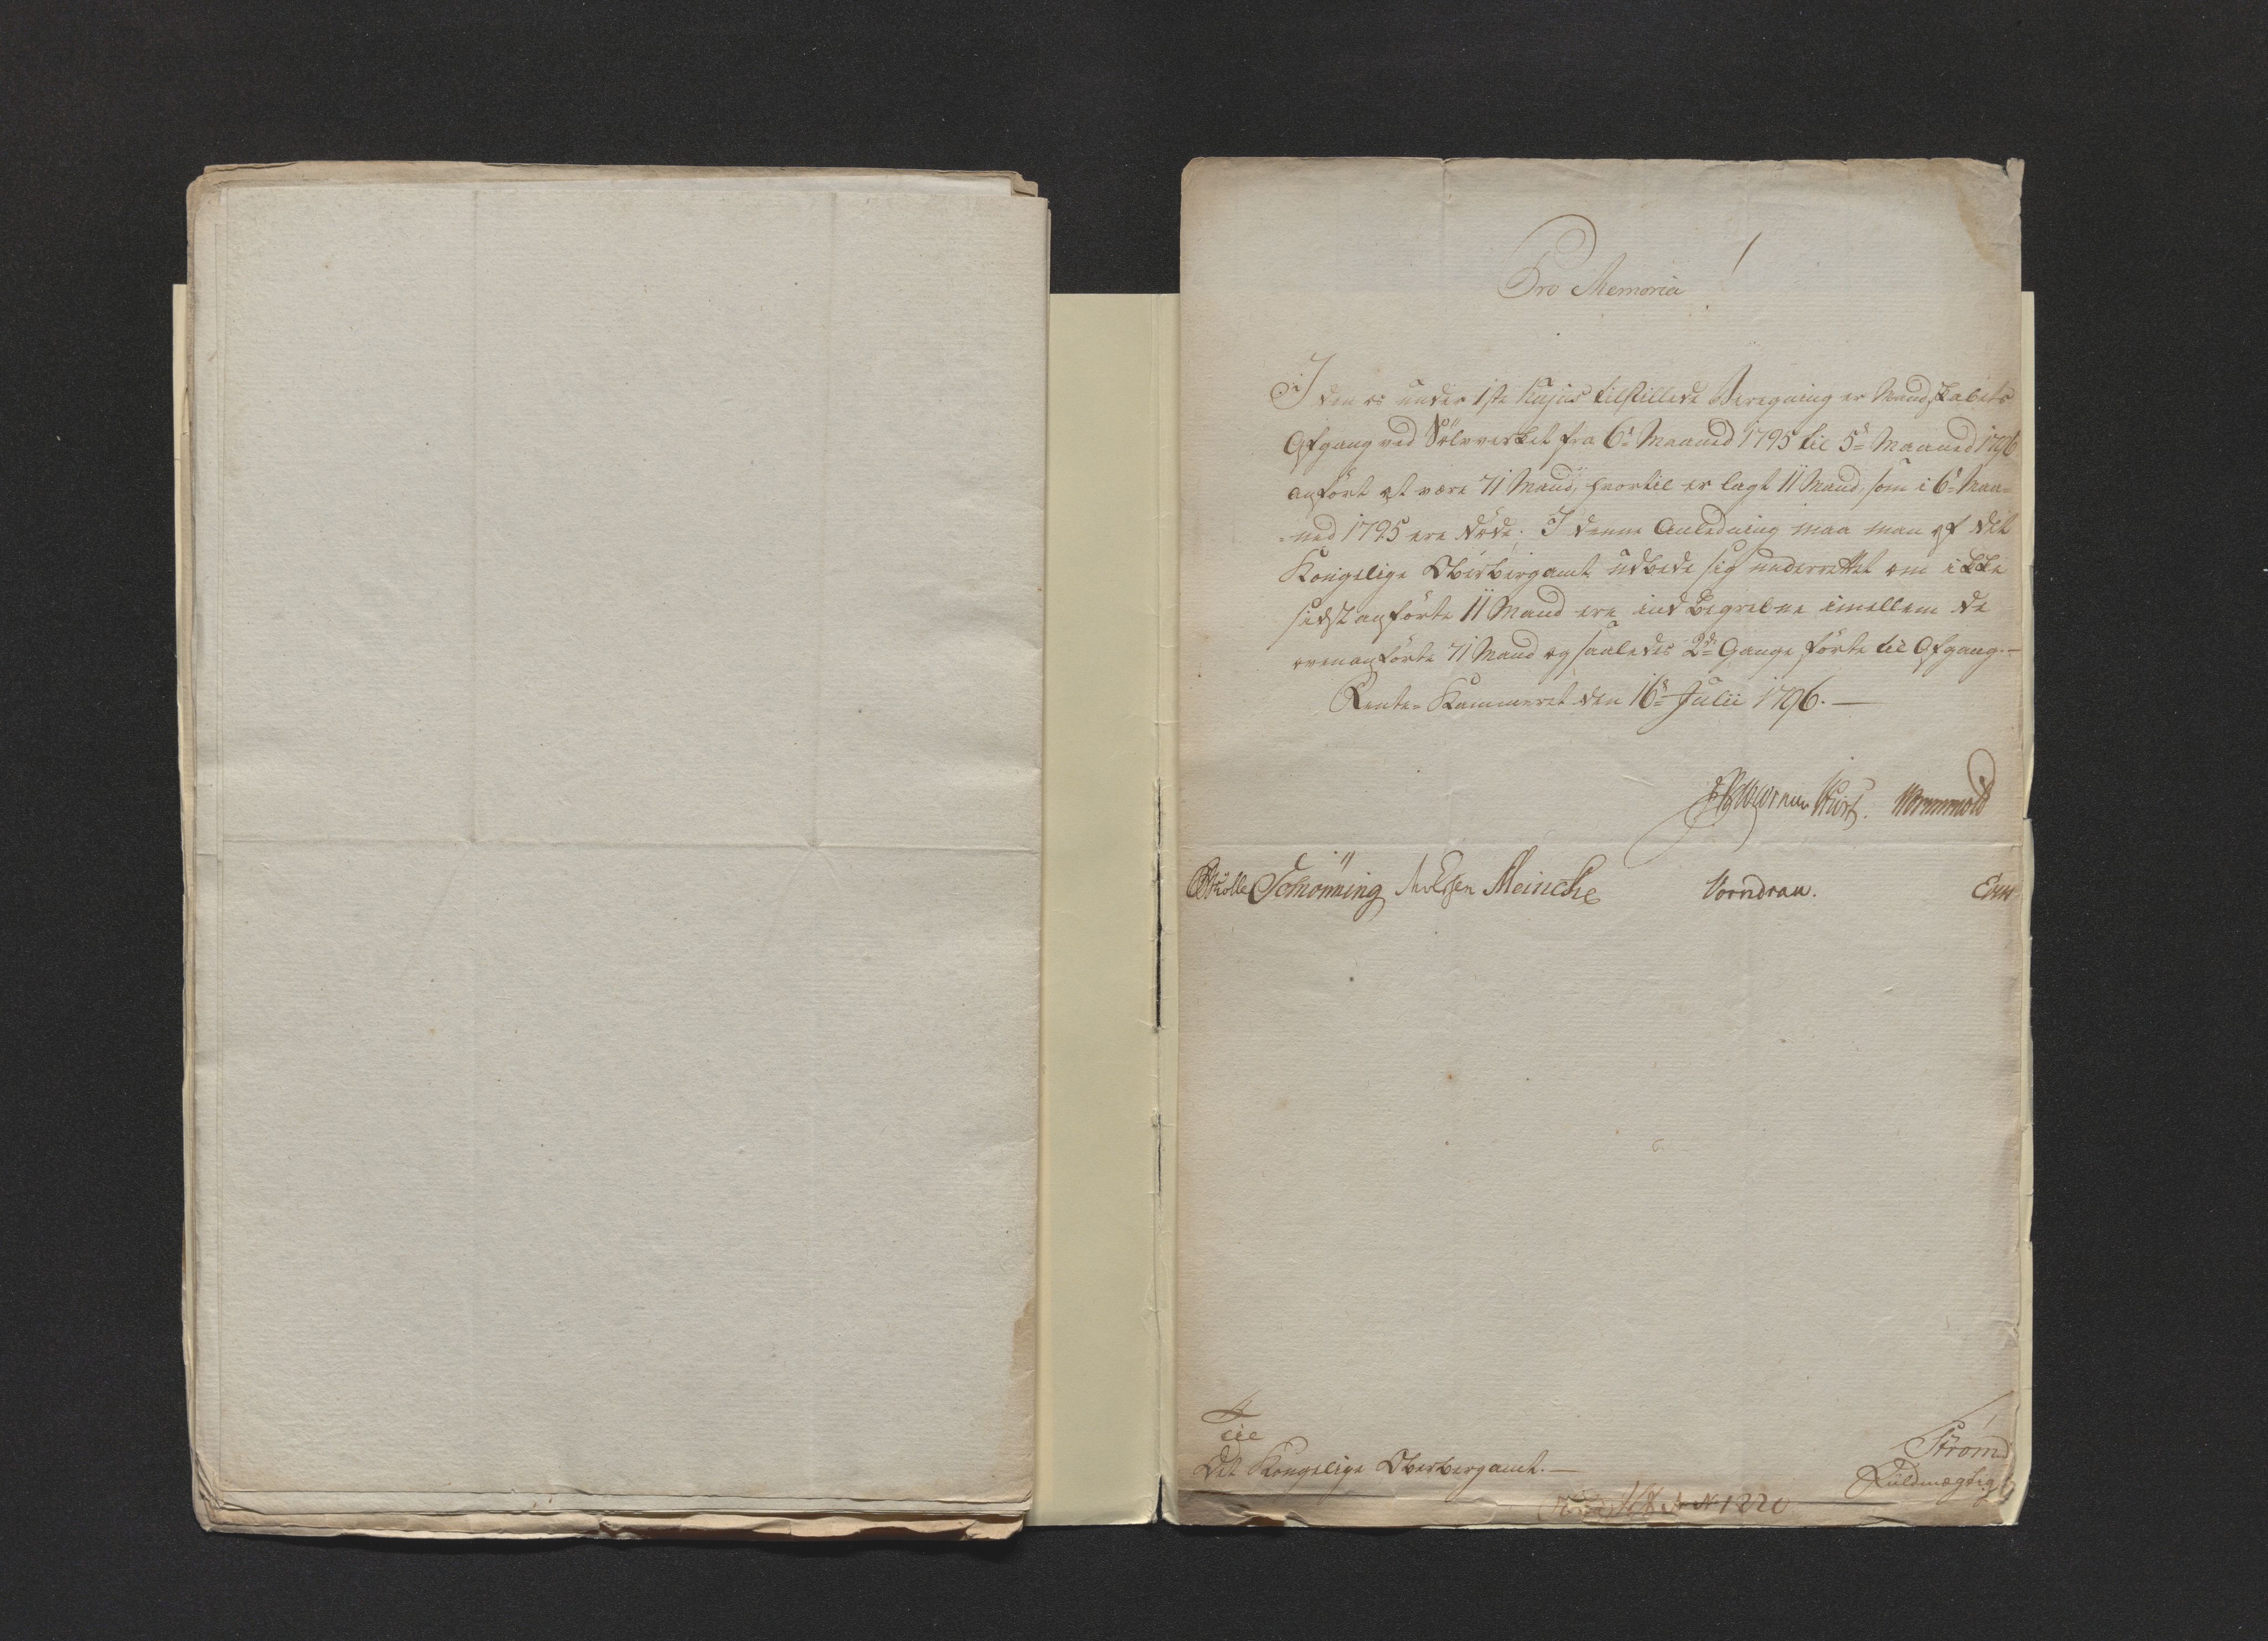 Pro Memoria!
I den os under 1ste Hujus tilstillede Beregning er Mandskabets
Afgang ved Sölvverket fra 6te Maaned 1795 til 5te Maaned 1796
anfört at være 71 Mand, hvortil er lagt 11 Mand, som i 6te Maa-
ned 1795 ere döde; I denne Anledning maa man af det
Kongelige Oberbergamt udbede sig underrettet om ikke
sidst anförte 11 Mand ere indbegrebne imellem de
ovenanförte 71 Mand og saaledes 2de Gange förte til Afgang.—
Rente-Kammeret den 16de Julii 1796.—
Wormer Wormwold
Schönning Meincke Vorndran.
Til
Det Kongelige Oberbergamt.—
Ström
Fuldmægtig
N 1220